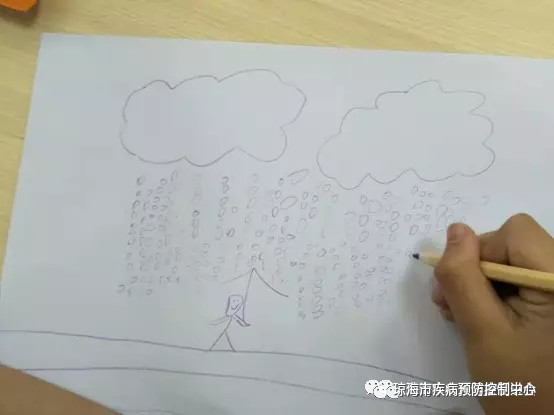 琼海市疾病预防控制中心